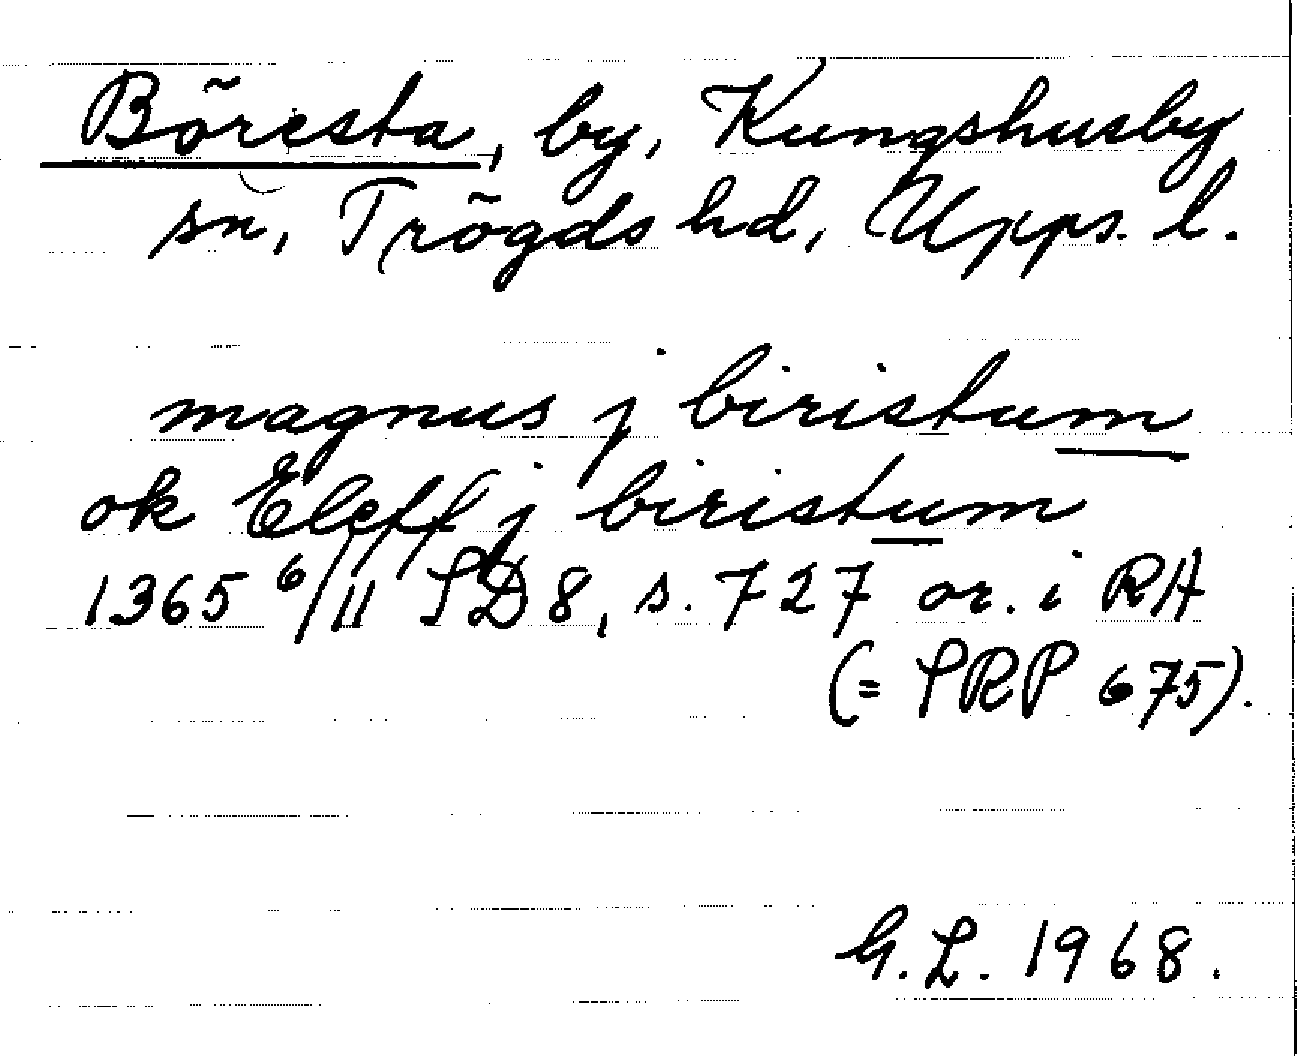 Böresta, by, Kungshusby
sn, Trögds hd, Upps. l.
magnus j biristum
ok Eleff j biristum
1365 6/11 SD 8, s. 727 or. i RA
(= SRP 675).
G. L. 1968.